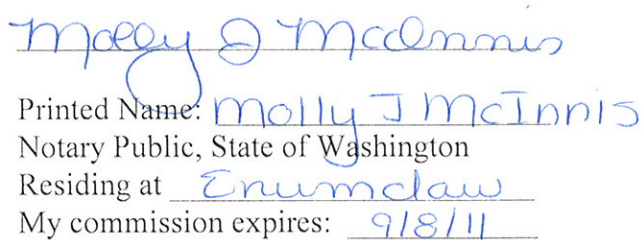 Molly J McInnis
Printed Name: Molly J McInnis
Notary Public, State of Washington
Residing at Enumclaw
My commission expires: 9/8/11